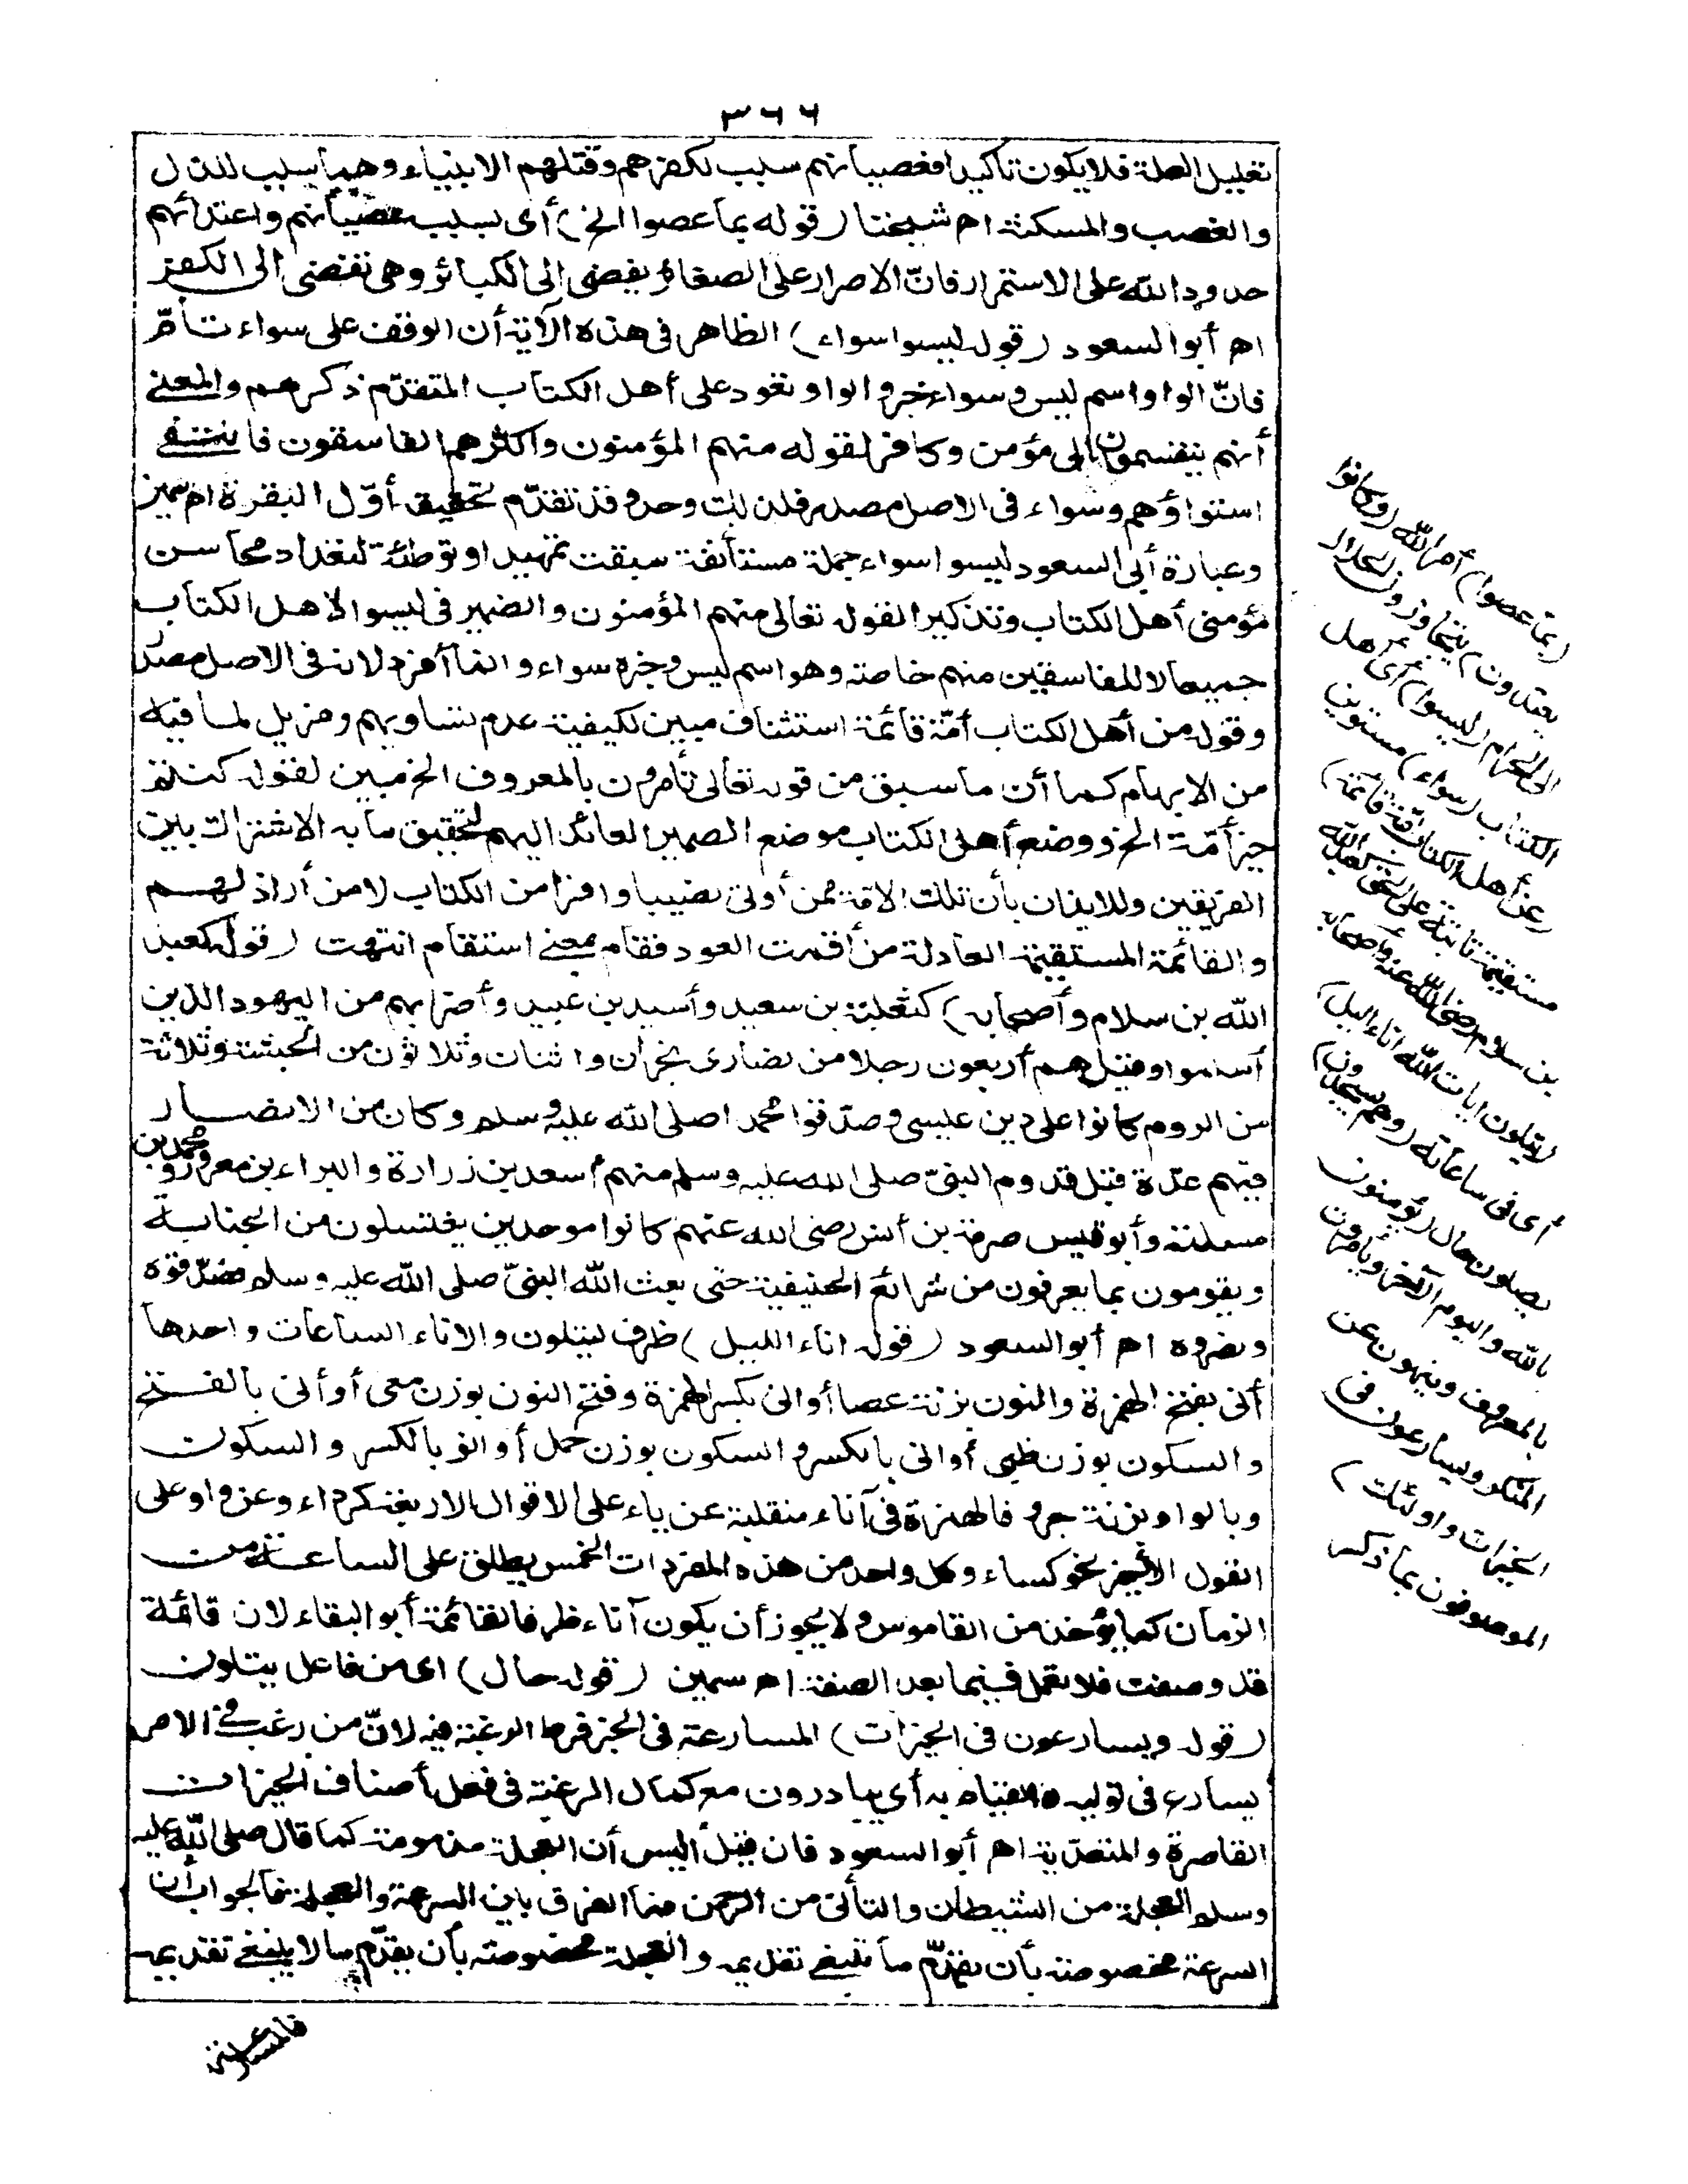 ٣٦٦
تعليل العلة فلا يكون تأكيدا فعصيانهم سبب لكفرهم وقتلهم الانبياء وهما سبب للذل
والغضب والمسكنة اه شيخنا (قوله بما عصوا الخ) أى بسبب عصيانهم واعتدائهم
حدود الله على الاستمرار فانّ الاصرار على الصغائر يفضى الى الكبائر وهى تفضى الى الكفر
اه أبو السعود (قوله ليسوا سواء) الظاهر فى هذه الآية أن الوقف على سواء تامّ
فانّ الواو اسم ليس وسواء خبر والواو تعود على أهل الكتاب المتقدّم ذكرهم والمعنى
أنهم ينقسمون الى مؤمن وكافر لقوله منهم المؤمنون وأكثرهم الفاسقون فانتفى
استواؤهم وسواء فى الاصل مصدر فلذلك وحد وقد تقدّم تحقيقه أوّل البقرة اه سمين
وعبارة أبى السعود ليسوا سواء جملة مستأنفة سيقت تمهيدا وتوطئة لتعداد محاسن
مؤمنى أهل الكتاب وتذكيرا لقوله تعالى منهم المؤمنون والضمير فى ليسوا لاهل الكتاب
جميعا لا للفاسقين منهم خاصة وهو اسم ليس وخبره سواء وانما أفرد لانه فى الاصل مصدر
وقوله من أهل الكتاب أمّة قائمة استئناف مبين لكيفية عدم تساويهم ومزيل لما فيه
من الابهام كما أن ما سبق من قوله تعالى تأمرون بالمعروف الخ مبين لقوله كنتم
خير أمّة الخ ووضع أهل الكتاب موضع الضمير العائد اليهم لتحقيق ما به الاشتراك بين
الفريقين وللايذان بأن تلك الامّة ممن أوتى نصيبا وافرا من الكتاب لا من أراذلهم
والقائمة المستقيمة العادلة من أقمت العود فقام بمعنى استقام انتهت (قوله كعبد
الله بن سلام وأصحابه) كثعلبة بن سعيد وأسيد بن عبيد وأضرابهم من اليهود الذين
أسلموا وقيل هم أربعون رجلا من نصارى نجران واثنان وثلاثون من الحبشة وثلاثة
من الروم كانوا على دين عيسى وصدّقوا محمدا صلى الله عليه وسلم وكان من الانصار
فيهم عدّة قبل قدوم النبىّ صلى الله عليه وسلم منهم أسعد بن زرارة والبراء بن معرور ومحمد بن
مسلمة وأبو قيس صرمة بن أنس رضى الله عنهم كانوا موحدين يغتسلون من الجنابة
ويقومون بما يعرفون من شرائع الحنيفية حتى بعث الله النبىّ صلى الله عليه وسلم فصدّقوه
ونصروه اه أبو السعود (قوله اناء الليل) ظرف ليتلون والاناء الساعات واحدها
أنى بفتح الهمزة والنون بزنة عصا أو انى بكسر الهمزة وفتح النون بوزن معى أو أنى بالفتح
والسكون بوزن ظبى أو انى بالكسر والسكون بوزن حمل أو انو بالكسر والسكون
وبالواو بزنة جرو فالهمزة فى آناء منقلبة عن ياء على الاقوال الاربعة كرداء وعن واو على
القول الأخير نحو كساء وكل واحد من هذه المفردات الخمس يطلق على الساعة من
الزمان كما يؤخذ من القاموس ولا يجوز أن يكون آناء ظرفا لقائمة أبو البقاء لان قائمة
قد وصفت فلا تعمل فيما بعد الصفة اه سمين (قوله حال) اى من فاعل يتلون
(قوله ويسارعون فى الخيرات) المسارعة فى الخير فرط الرغبة فيه لانّ من رغب فى الامر
يسارع فى توليه والقيام به أى يبادرون مع كمال الرغبة فى فعل أصناف الخيرات
القاصرة والمتعدّية اه أبو السعود فان قيل أليس أن العجلة مذمومة كما قال صلى الله عليه
وسلم العجلة من الشيطان والتأنى من الرحمن فما الفرق بين السرعة والعجلة فالجواب أن
السرعة مخصوصة بأن يقدّم ما ينبغى تقديمه والعجلة مخصوصة بأن يقدّم ما لا ينبغى تقديمه
فالمسارعة
(بما عصوا) أمر الله (وكانوا
يعتدون) يتجاوزون الحلال
الى الحرام (ليسوا) أى أهل
الكتاب (سواء) مستوين
(من أهل الكتاب أمّة قائمة)
مستقيمة ثابتة على الحق كعبد الله
بن سلام رضى الله عنه وأصحابه
(يتلون ايات الله اناء الليل)
أى فى ساعاته (وهم يسجدون)
يصلون حال (يؤمنون
بالله واليوم الآخر ويأمرون
بالمعروف وينهون عن
المنكر ويسارعون فى
الخيرات واولئك)
الموصوفون بما ذكر